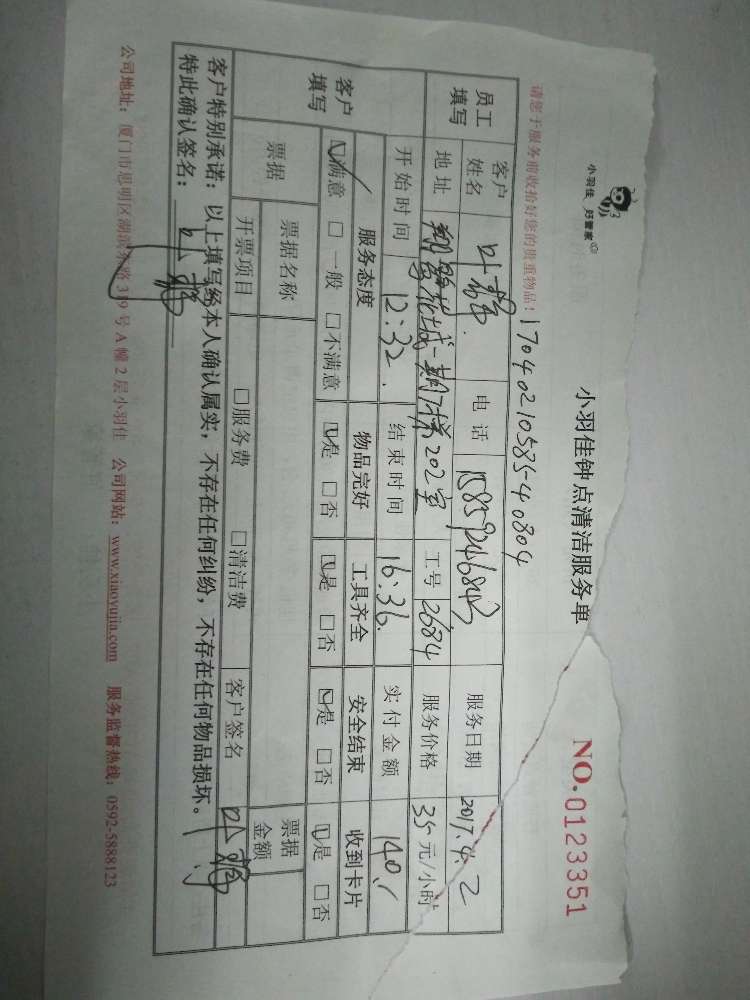 小羽佳 好管家
小羽佳钟点清洁服务单
NO.0123351
请您于服务前收拾好您的贵重物品！
17040210585-40804
员工填写
客户姓名 叶 电话 15859246843 服务日期 2017.4.2
地址 翔鹭花城一期 202室 工号 2684 服务价格 35元/小时
开始时间 12:32. 结束时间 16:36. 实付金额 140.
客户填写
服务态度 物品完好 工具齐全 安全结束 收到卡片
☑满意 □一般 □不满意 ☑是 □否 ☑是 □否 ☑是 □否 ☑是 □否
票据 票据名称 票据金额
开票项目 □服务费 □清洁费 客户签名 叶
客户特别承诺：以上填写经本人确认属实，不存在任何纠纷，不存在任何物品损坏。
特此确认签名： 叶
公司地址：厦门市思明区湖滨东路319号A幢2层小羽佳 公司网站：www.xiaoyujia.com 服务监督热线：0592-5888123